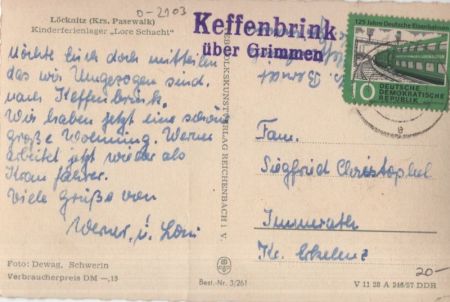 D-2903
Löcknitz (Krs. Pasewalk)
Kinderferienlager „Lore Schacht"
Möchte Euch doch mitteilen
das wir Umgezogen sind.
nach Keffenbrink.
Wir haben jetzt eine schöne
große Wohnung. Werner
arbeitet jetzt wieder als
fahrer.
Viele Grüße von
Werner, u.
Foto: Dewag, Schwerin
Verbraucherpreis DM —,15
VOLKSKUNSTVERLAG REICHENBACH I. V.
Best.-Nr. 3/261
Keffenbrink
über Grimmen
125 Jahre Deutsche Eisenbahnen
10
DEUTSCHE
DEMOKRATISCHE
REPUBLIK
Fam.
Siegfried Christophel
Immerath
Kr. Erkelenz
20-
V 11 28 A 246/57 DDR